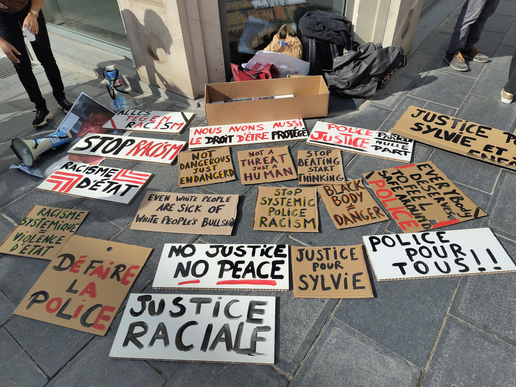 ALLEZ
RACISM
STOP RACISM
RACISME
D'ÉTAT
NOUS AVONS AUSSI
LE DROIT D'ÊTRE PROTÉGÉ
POLICE PARTOUT
JUSTICE NULLE PART
JUSTICE POUR
SYLVIE ET
NOT
DANGEROUS
JUST
ENDANGERED
NOT A
THREAT
JUST
HUMAN
STOP
BEATING
START
THINKING
EVEN WHITE PEOPLE ARE SICK OF
WHITE PEOPLE'S BULLSHIT
STOP
SYSTEMIC
POLICE
RACISM
BLACK
BODY
DANGER
EVERYBODY
DESERVES
TO
FEEL
SAFE
POLICE
RACISME
SYSTEMIQUE
VIOLENCE
D'ETAT
DÉFAIRE
LA
POLICE
NO JUSTICE
NO PEACE
JUSTICE
POUR
SYLVIE
POLICE POUR
TOUS!!
JUSTICE
RACIALE